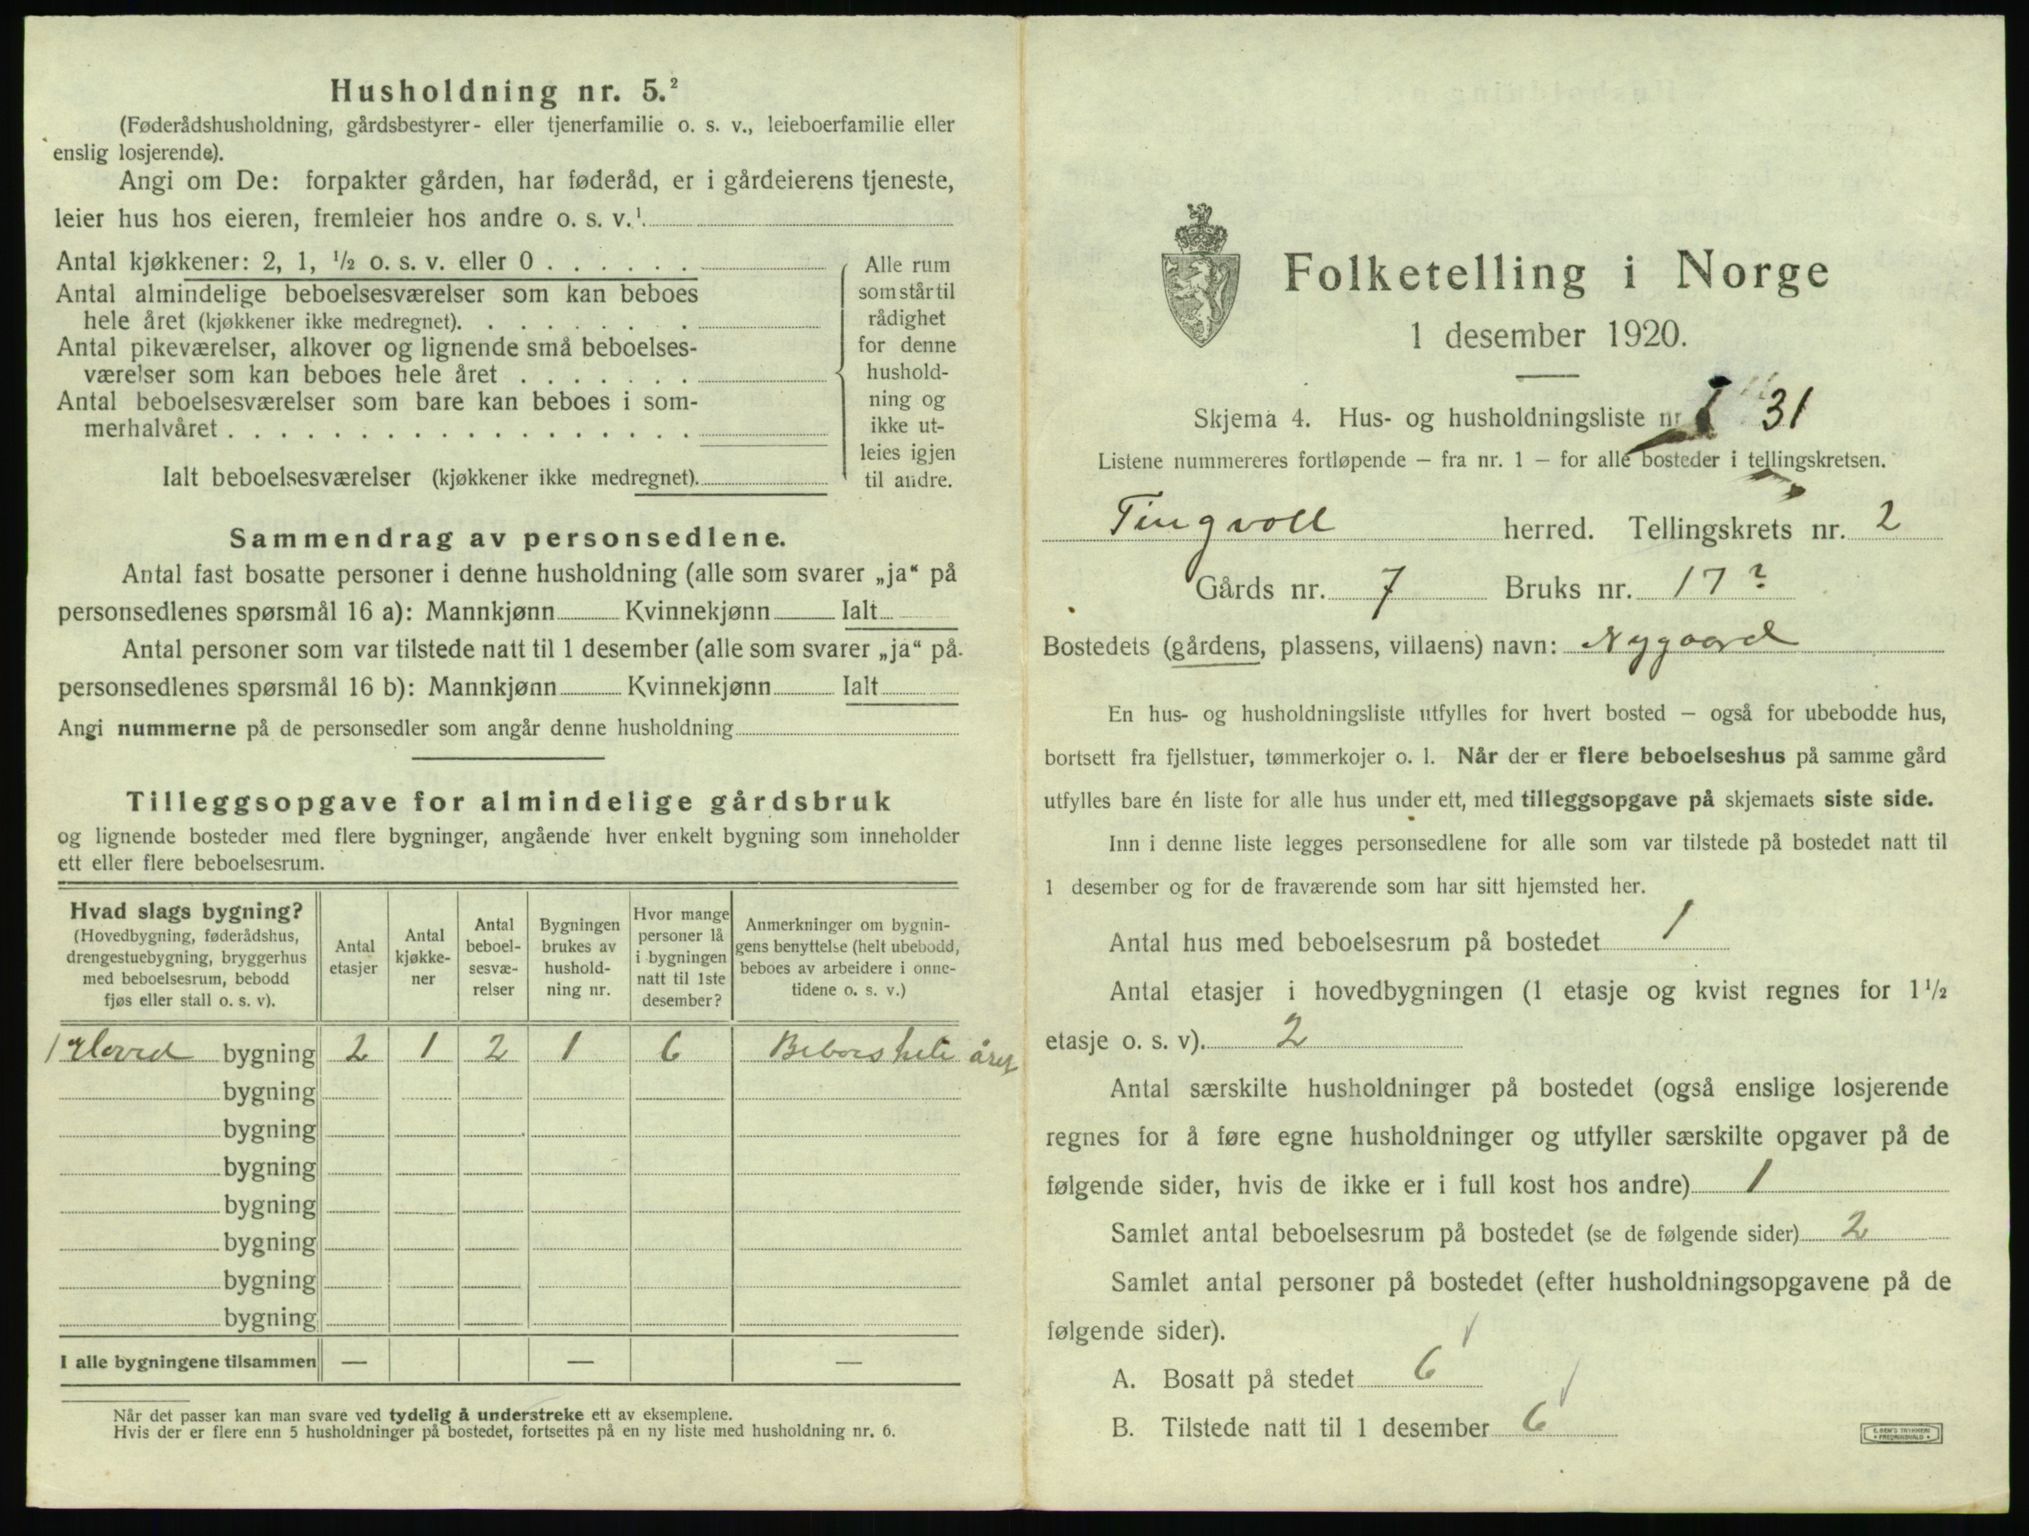 Husholdning nr. 5.²
(Føderådshusholdning, gårdsbestyrer- eller tjenerfamilie o. s. v., leieboerfamilie eller
enslig losjerende).
Angi om De: forpakter gården, har føderåd, er i gårdeierens tjeneste,
leier hus hos eieren, fremleier hos andre o. s. v.¹
Antal kjøkkener: 2, 1, ½ o. s. v. eller 0 . . . . . .
Antal almindelige beboelsesværelser som kan beboes
hele året (kjøkkener ikke medregnet). . . . . . . . .
Antal pikeværelser, alkover og lignende små beboelses-
værelser som kan beboes hele året . . . . . . .
Antal beboelsesværelser som bare kan beboes i som-
merhalvåret . . . . . . . . . . . . . . . . . .
Ialt beboelsesværelser (kjøkkener ikke medregnet).
Alle rum
som står til
rådighet
for denne
hushold-
ning og
ikke ut-
leies igjen
til andre.
Sammendrag av personsedlene.
Antal fast bosatte personer i denne husholdning (alle som svarer „ja“ på
personsedlenes spørsmål 16 a): Mannkjønn Kvinnekjønn Ialt
Antal personer som var tilstede natt til 1 desember (alle som svarer „ja“ på
personsedlenes spørsmål 16 b): Mannkjønn Kvinnekjønn Ialt
Angi nummerne på de personsedler som angår denne husholdning
Tilleggsopgave for almindelige gårdsbruk
og lignende bosteder med flere bygninger, angående hver enkelt bygning som inneholder
ett eller flere beboelsesrum.
Hvad slags bygning?
(Hovedbygning, føderådshus,
drengestuebygning, bryggerhus
med beboelsesrum, bebodd
fjøs eller stall o. s. v).
Antal
etasjer
Antal
kjøkke-
ner
Antal
beboel-
sesvæ-
relser
Bygningen
brukes av
hushold-
ning nr.
Hvor mange
personer lå
i bygningen
natt til 1ste
desember?
Anmerkninger om bygnin-
gens benyttelse (helt ubebodd,
beboes av arbeidere i onne-
tidene o. s. v.)
1 Hoved bygning 2 1 2 1 6 Beboes hele året
bygning
bygning
bygning
bygning
bygning
bygning
bygning
I alle bygningene tilsammen — — —
Når det passer kan man svare ved tydelig å understreke ett av eksemplene.
Hvis der er flere enn 5 husholdninger på bostedet, fortsettes på en ny liste med husholdning nr. 6.
Folketelling i Norge
1 desember 1920.
Skjema 4. Hus- og husholdningsliste nr 31
Listene nummereres fortløpende – fra nr. 1 – for alle bosteder i tellingskretsen.
Tingvoll herred. Tellingskrets nr. 2
Gårds nr. 7 Bruks nr. 17?
Bostedets (gårdens, plassens, villaens) navn: Nygaard
En hus- og husholdningsliste utfylles for hvert bosted – også for ubebodde hus,
bortsett fra fjellstuer, tømmerkojer o. l. Når der er flere beboelseshus på samme gård
utfylles bare én liste for alle hus under ett, med tilleggsopgave på skjemaets siste side.
Inn i denne liste legges personsedlene for alle som var tilstede på bostedet natt til
1 desember og for de fraværende som har sitt hjemsted her.
Antal hus med beboelsesrum på bostedet 1
Antal etasjer i hovedbygningen (1 etasje og kvist regnes for 1½
etasje o. s. v). 2
Antal særskilte husholdninger på bostedet (også enslige losjerende
regnes for å føre egne husholdninger og utfyller særskilte opgaver på de
følgende sider, hvis de ikke er i full kost hos andre) 1
Samlet antal beboelsesrum på bostedet (se de følgende sider) 2
Samlet antal personer på bostedet (efter husholdningsopgavene på de
følgende sider).
A. Bosatt på stedet 6
B. Tilstede natt til 1 desember 6